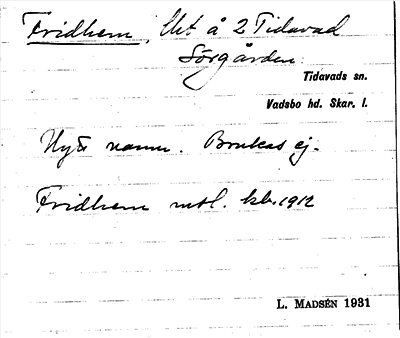 Fridhem, Uet å 2 Tidavad
Sörgården
Tidavads sn.
Vadsbo hd. Skar. l.
Nytt namn. Brukas ej.
Fridhem mtl. kb. 1912
L. MADSÉN 1931